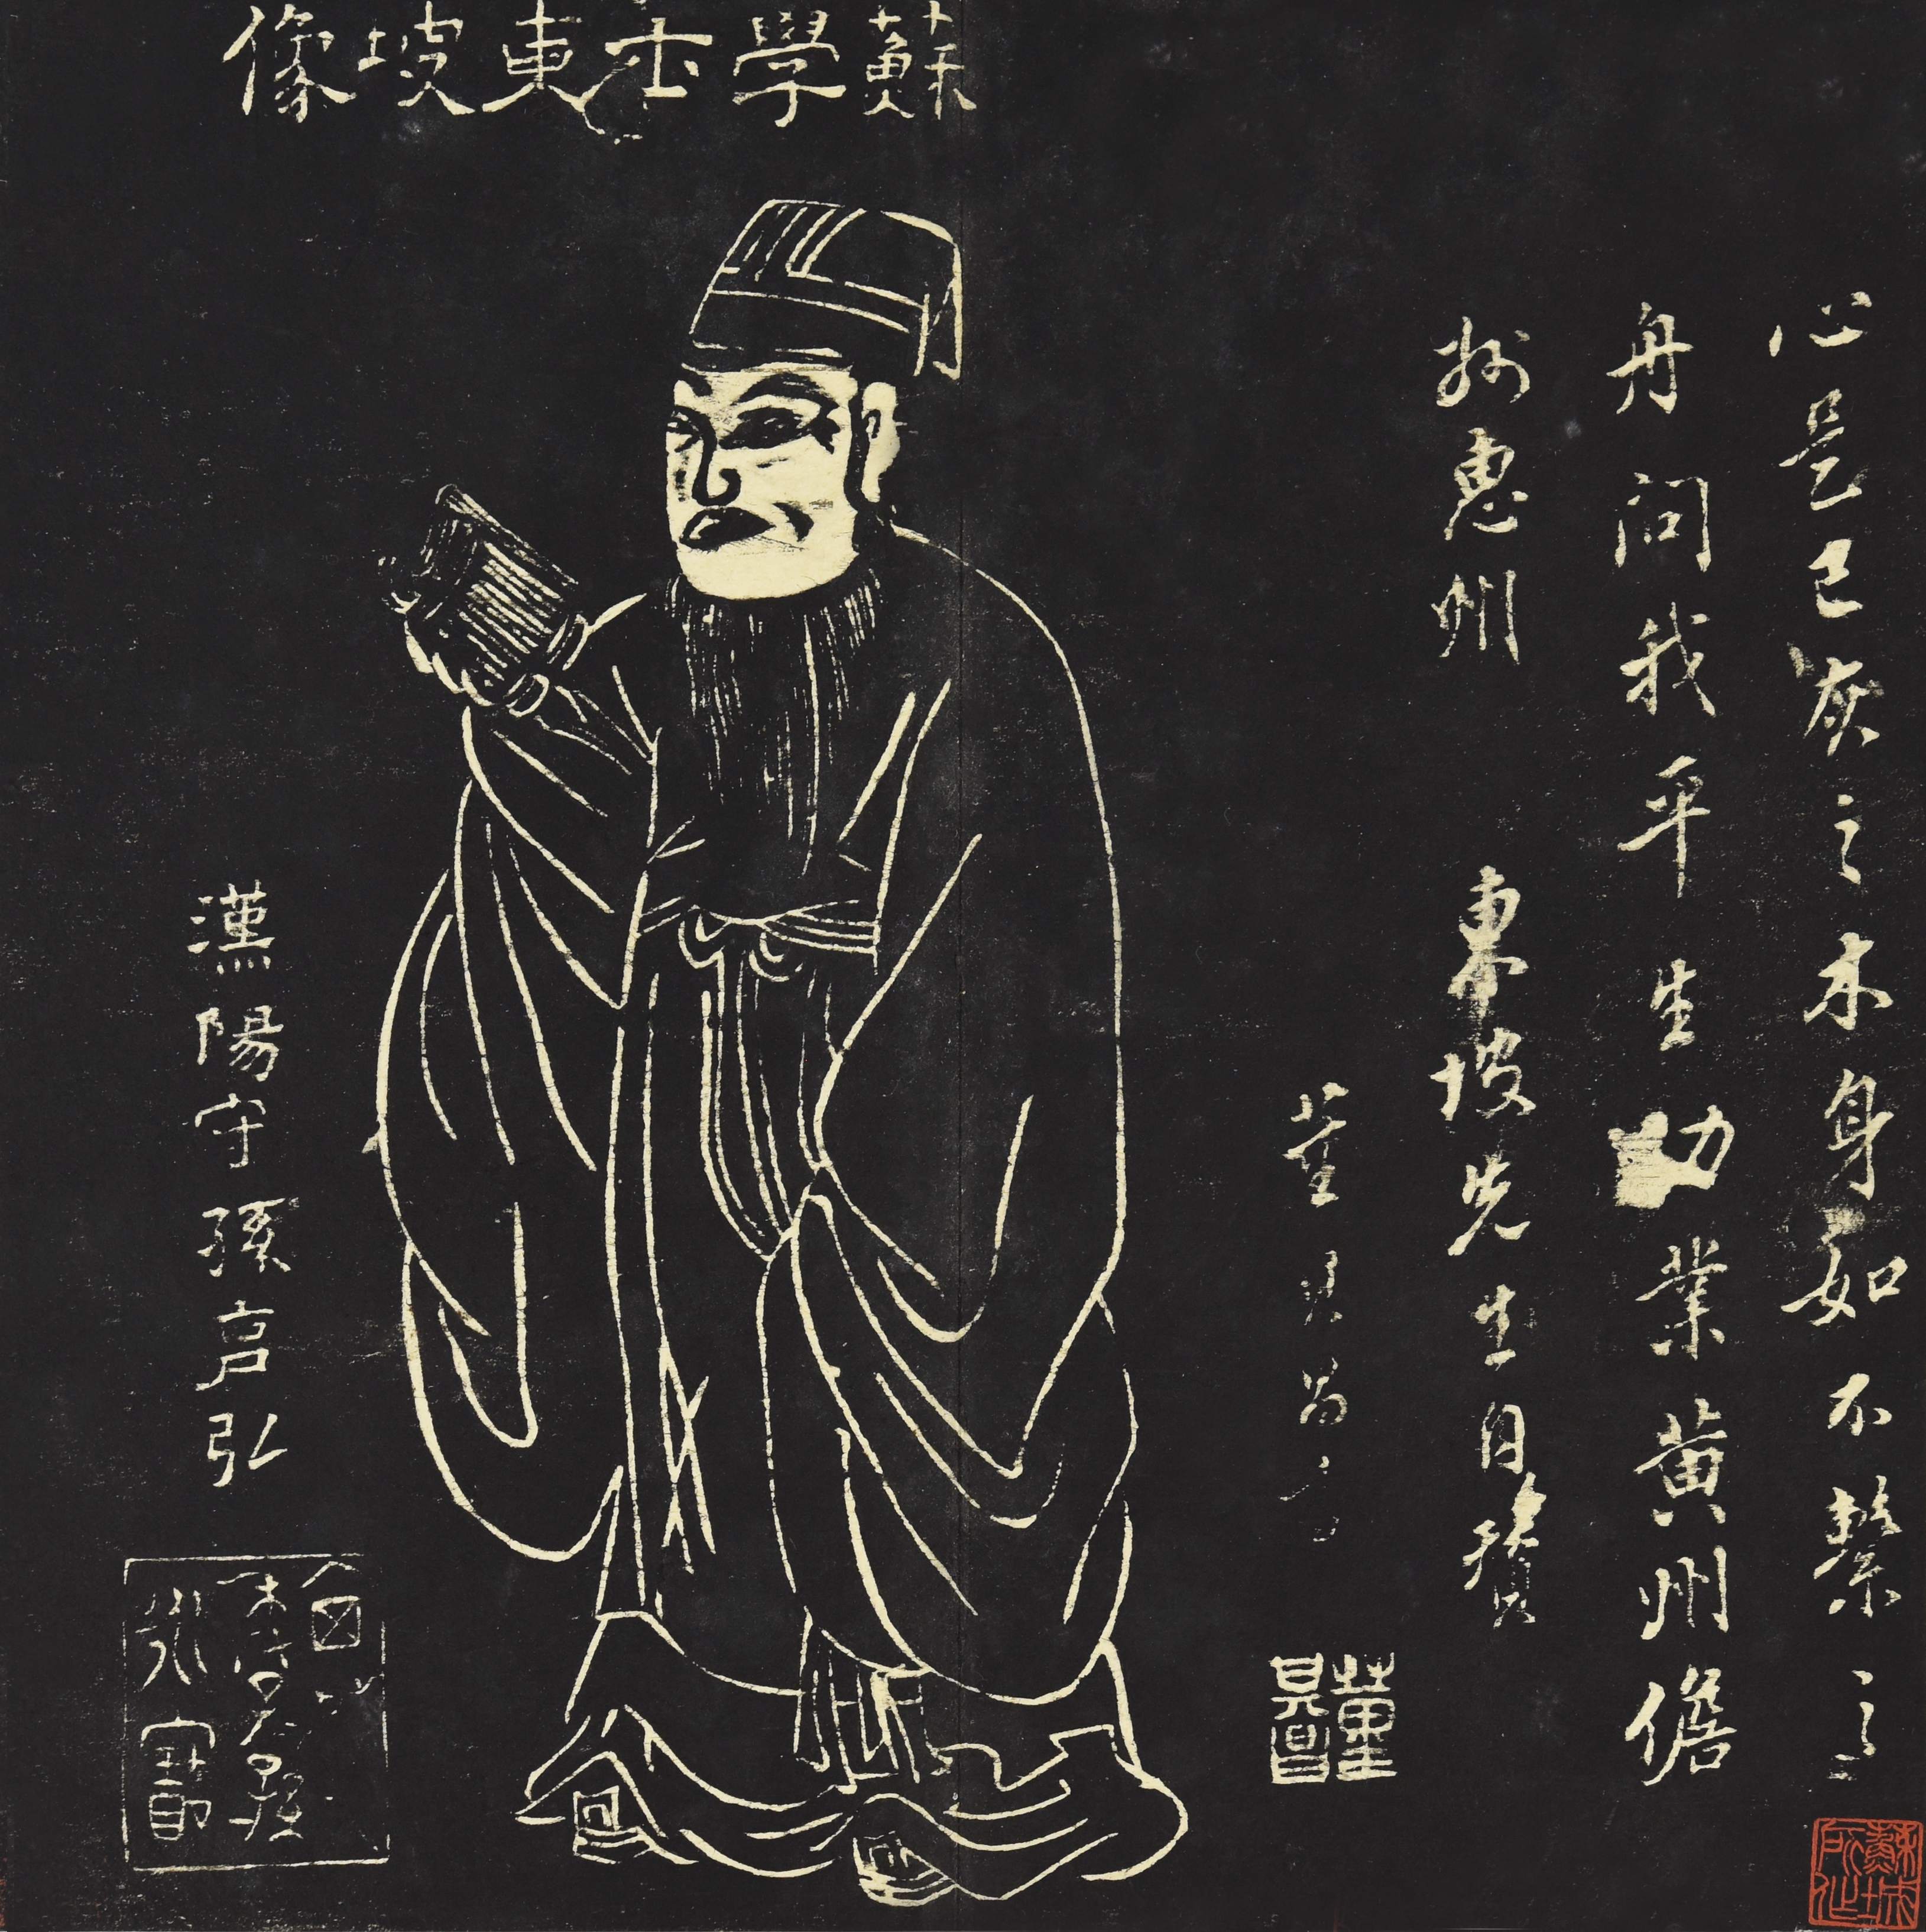 蘇學士東坡像
心是已灰之木身如不繫之
舟問我平生功業黃州儋
州惠州 東坡先生自贊
董其昌書
董其昌
漢陽守孫克弘